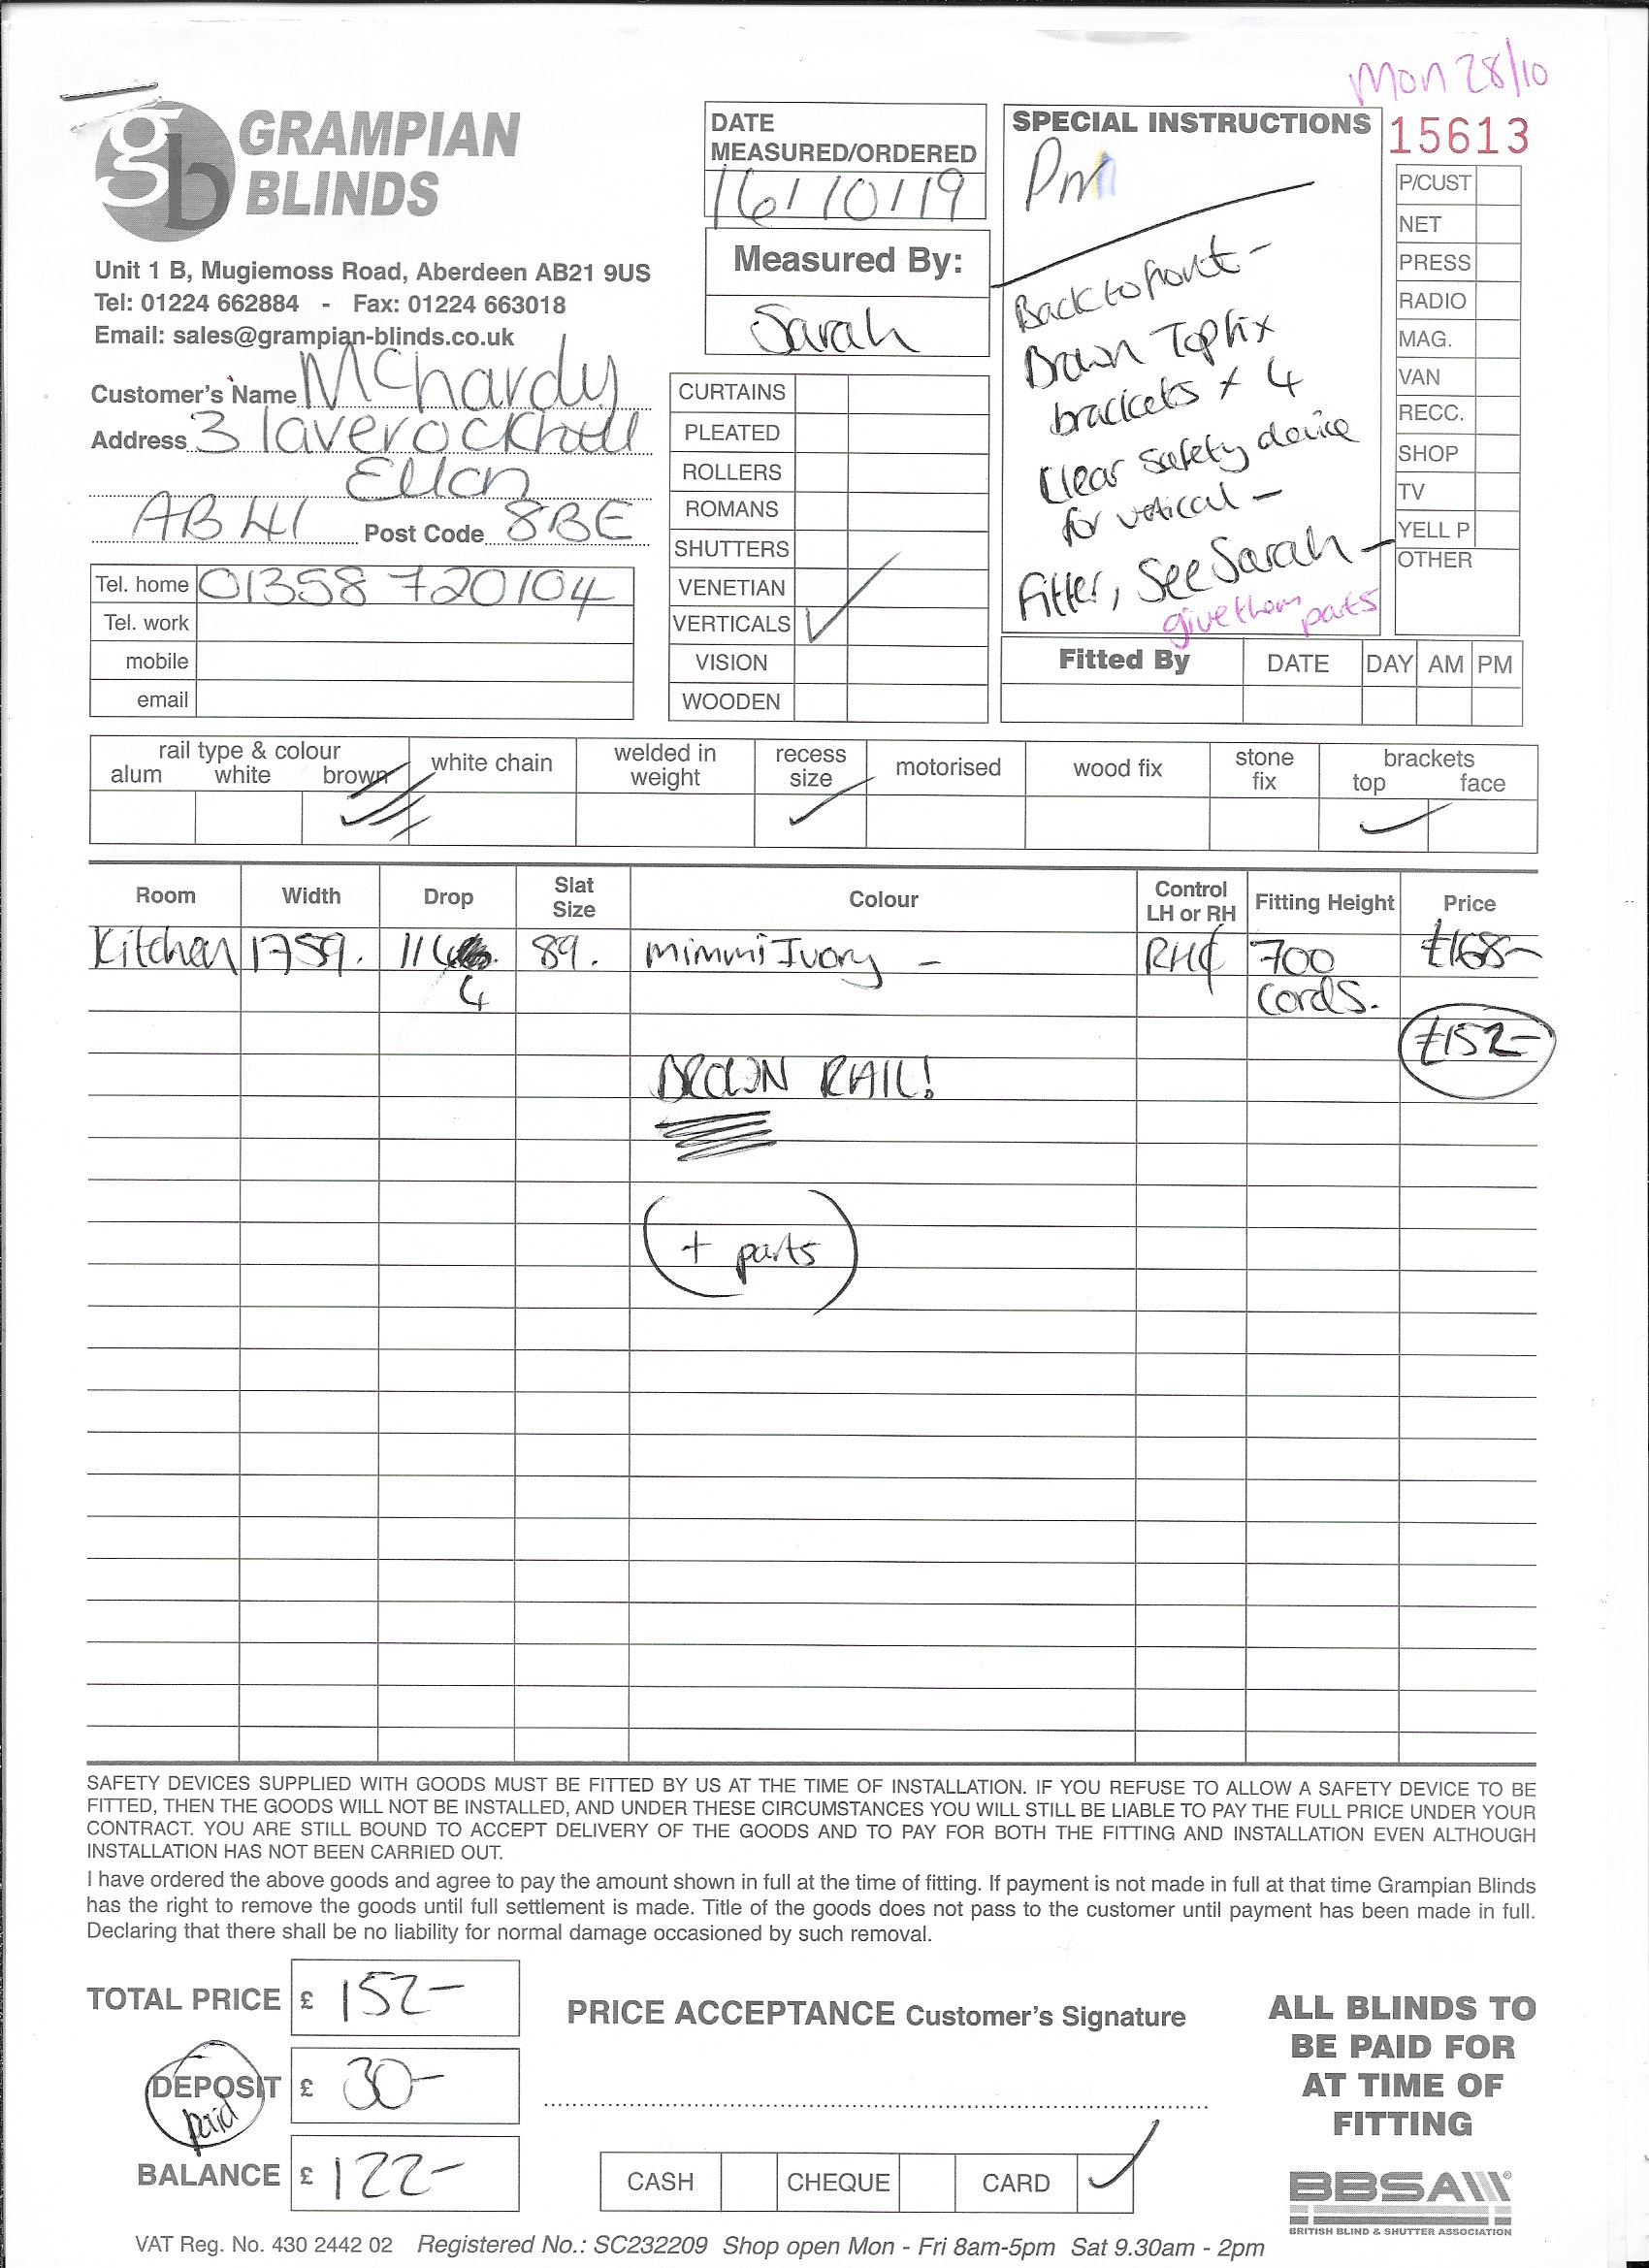 Mon 28/10
gb GRAMPIAN
BLINDS
Unit 1 B, Mugiemoss Road, Aberdeen AB21 9US
Tel: 01224 662884 - Fax: 01224 663018
Email: sales@grampian-blinds.co.uk
Customer's Name McHardy
Address 3 laverockhill
Ellon
AB41 Post Code 8BE
Tel. home 01358 720104
Tel. work
mobile
email
DATE
MEASURED/ORDERED
16/10/19
Measured By:
Sarah
CURTAINS
PLEATED
ROLLERS
ROMANS
SHUTTERS
VENETIAN
VERTICALS ✓
VISION
WOODEN
SPECIAL INSTRUCTIONS
Pm
Back to front -
Brown Topfix
brackets x 4
Clear safety device
for vertical -
Fitter, See Sarah -
give them parts
15613
P/CUST
NET
PRESS
RADIO
MAG.
VAN
RECC.
SHOP
TV
YELL P
OTHER
Fitted By DATE DAY AM PM
rail type & colour
alum white brown ✓
white chain
welded in
weight
recess
size ✓
motorised
wood fix
stone
fix
brackets
top ✓ face
Room Width Drop Slat Size Colour Control LH or RH Fitting Height Price
Kitchen 1759. 114 89. mimmi Ivory - RH¢ 700 £168-
4 cords.
£152-
BROWN RAIL!
+ parts
SAFETY DEVICES SUPPLIED WITH GOODS MUST BE FITTED BY US AT THE TIME OF INSTALLATION. IF YOU REFUSE TO ALLOW A SAFETY DEVICE TO BE
FITTED, THEN THE GOODS WILL NOT BE INSTALLED, AND UNDER THESE CIRCUMSTANCES YOU WILL STILL BE LIABLE TO PAY THE FULL PRICE UNDER YOUR
CONTRACT. YOU ARE STILL BOUND TO ACCEPT DELIVERY OF THE GOODS AND TO PAY FOR BOTH THE FITTING AND INSTALLATION EVEN ALTHOUGH
INSTALLATION HAS NOT BEEN CARRIED OUT.
I have ordered the above goods and agree to pay the amount shown in full at the time of fitting. If payment is not made in full at that time Grampian Blinds
has the right to remove the goods until full settlement is made. Title of the goods does not pass to the customer until payment has been made in full.
Declaring that there shall be no liability for normal damage occasioned by such removal.
TOTAL PRICE £ 152-
DEPOSIT £ 30-
paid
BALANCE £ 122-
PRICE ACCEPTANCE Customer's Signature
CASH CHEQUE CARD ✓
ALL BLINDS TO
BE PAID FOR
AT TIME OF
FITTING
BBSA
BRITISH BLIND & SHUTTER ASSOCIATION
VAT Reg. No. 430 2442 02 Registered No.: SC232209 Shop open Mon - Fri 8am-5pm Sat 9.30am - 2pm